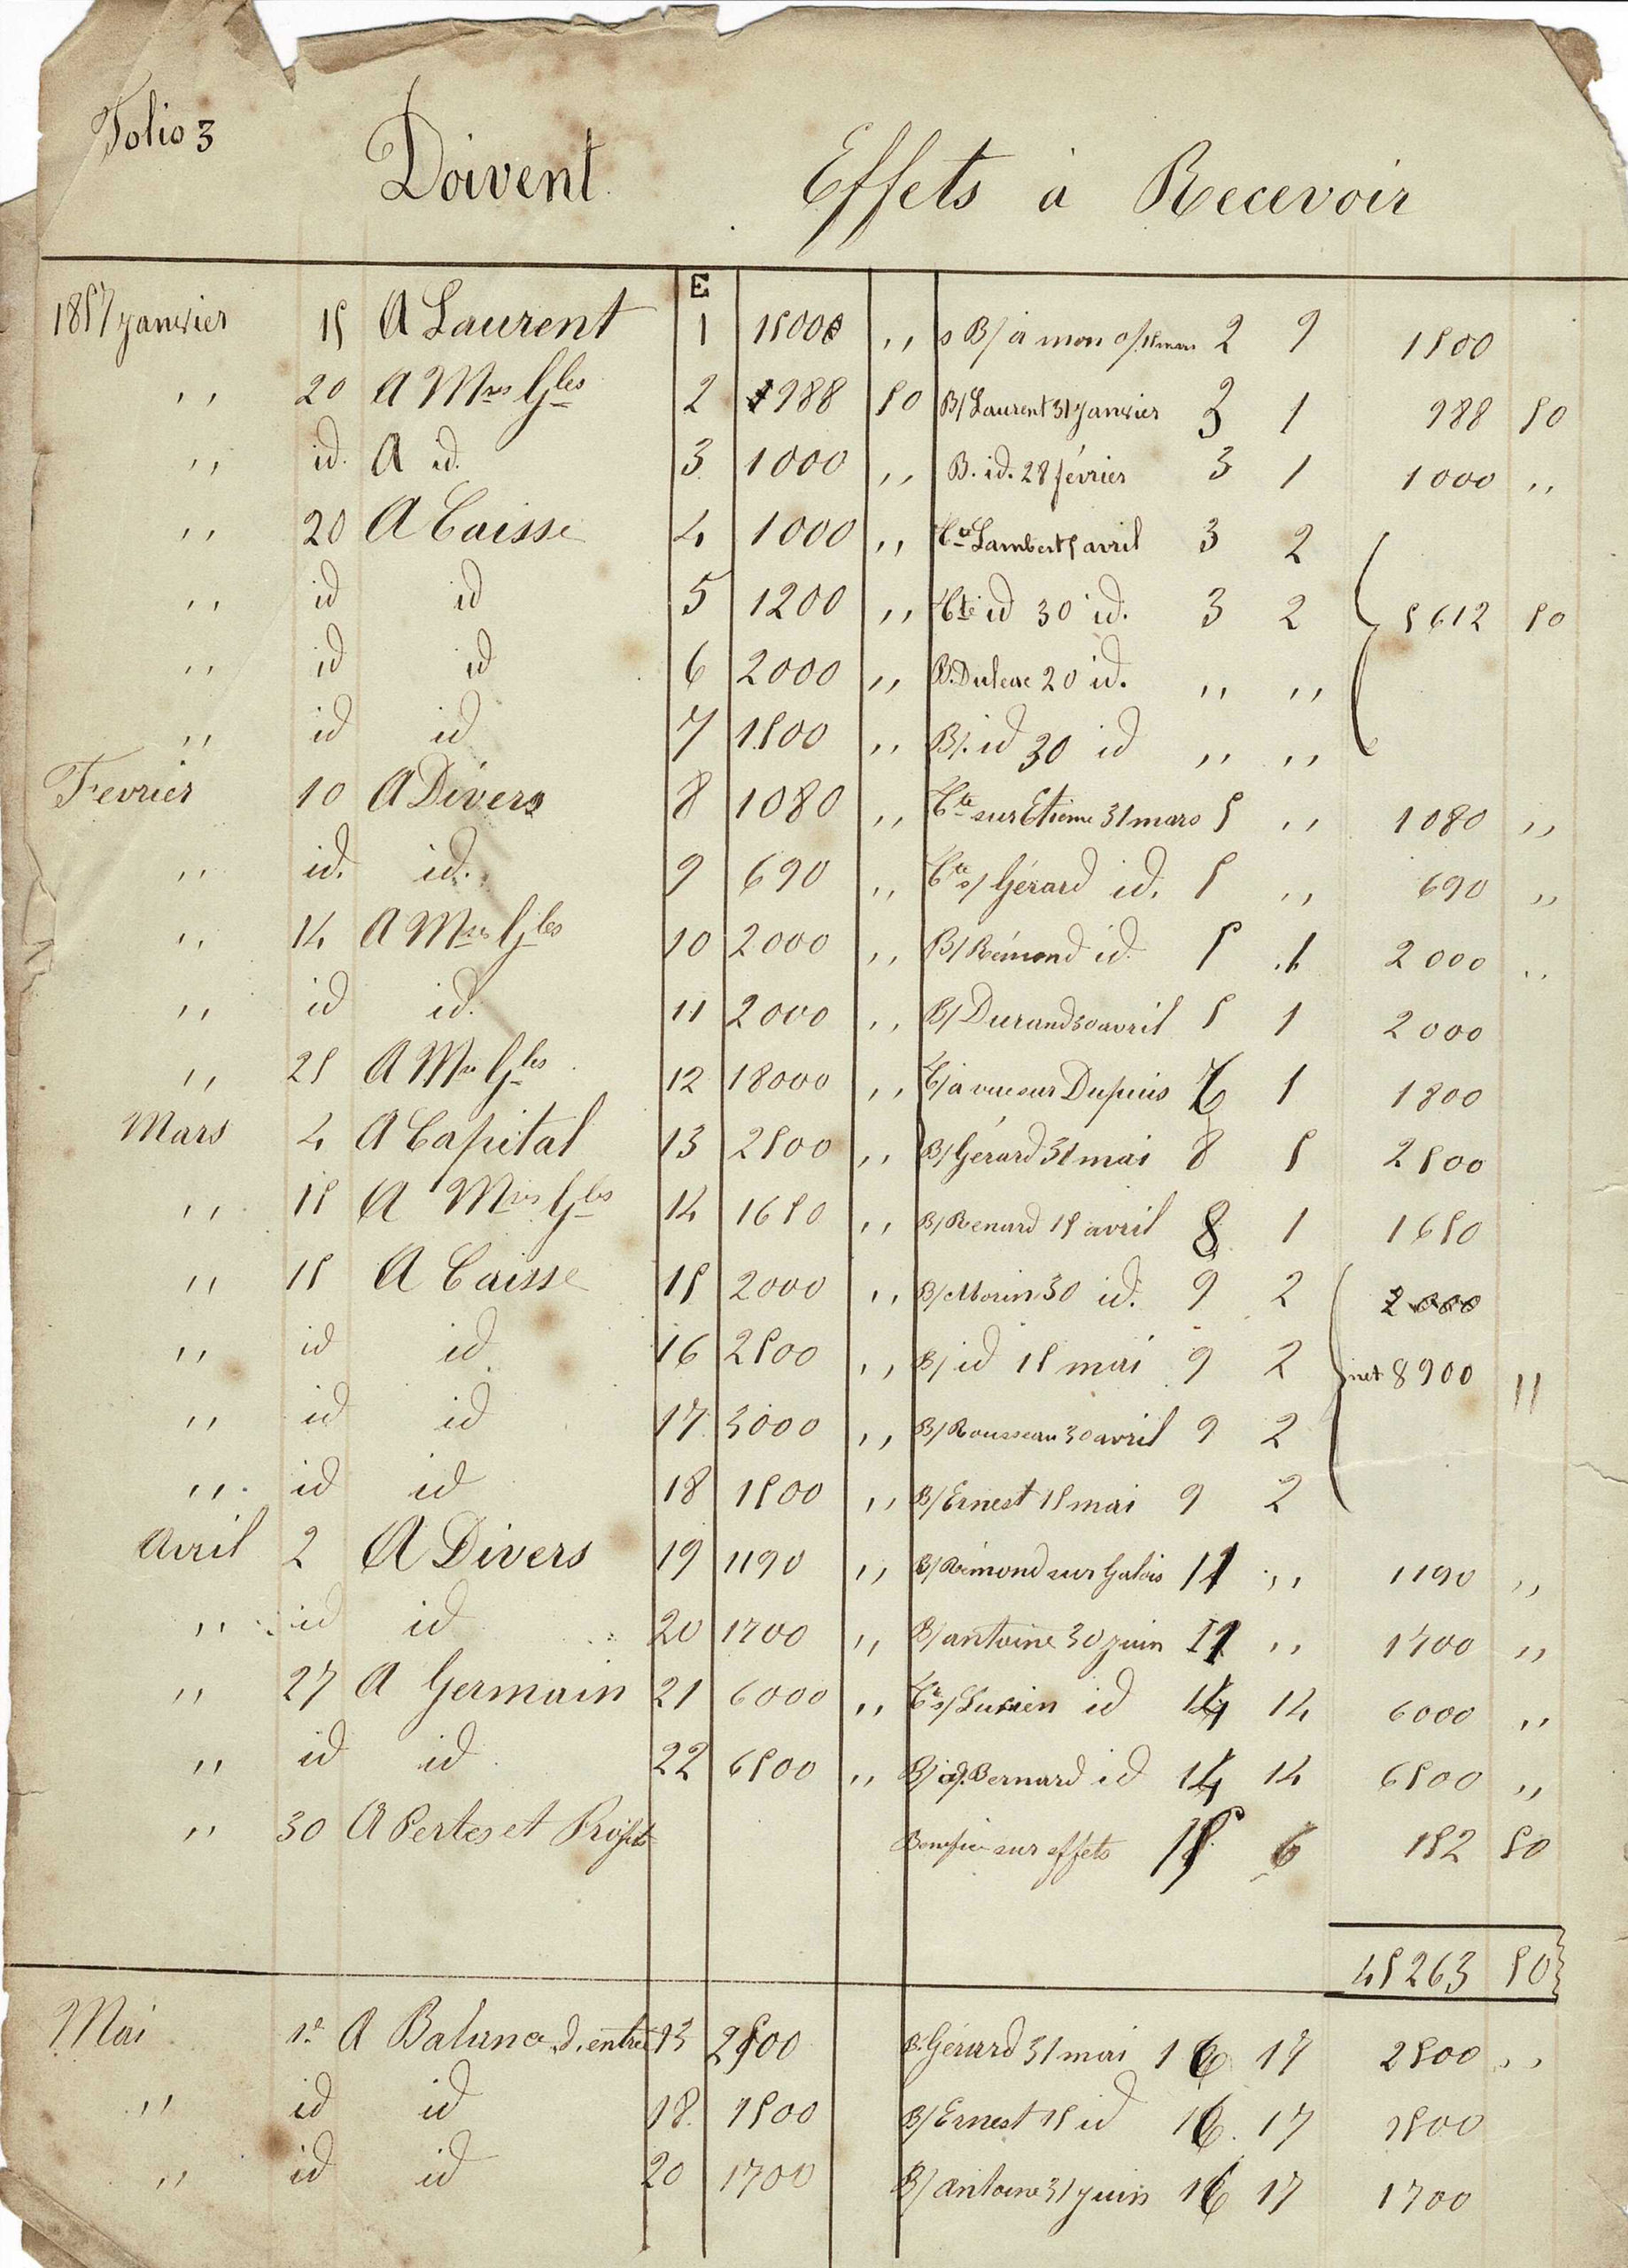 Folio 3
Doivent Effets à Recevoir
E
1857 janvier 15 A Laurent 1 15000 ,, s B/ à mon o/ 15 mars 2 9 1500
,, 20 A Mses Gles 2 1988 50 B/ Laurent 31 janvier 3 1 988 50
,, id. A id. 3 1000 ,, B. id. 28 février 3 1 1000 ,,
,, 20 A Caisse 4 1000 ,, Cte Lambert 5 avril 3 2
,, id id 5 1200 ,, Cte id 30 id. 3 2 5612 50
,, id id 6 2000 ,, B. 20 id. ,, ,,
,, id id 7 1500 ,, B/. id 30 id ,, ,,
Fevrier 10 A Divers 8 1080 ,, Cte sur Etienne 31 mars 5 ,, 1080 ,,
,, id. id. 9 690 ,, Cte s/ Gérard id. 5 ,, 690 ,,
,, 14 A Mses Gles 10 2000 ,, B/ Rémond id. 5 1 2000 ,,
,, id id. 11 2000 ,, B/ Durand 30 avril 5 1 2000
,, 25 A Mses Gles 12 18000 ,, T/ à vue sur Dupuis 7 1 1800
Mars 4 A Capital 13 2500 ,, B/ Gérard 31 mai 8 5 2500
,, 15 A Mses Gles 14 1650 ,, B/ Renard 15 avril 8 1 1650
,, 15 A Caisse 15 2000 ,, B/ Morin 30 id. 9 2 2000
,, id id 16 2500 ,, B/ id 15 mai 9 2 net 8900 ,,
,, id id 17 3000 ,, B/ Rousseau 30 avril 9 2
,, id id 18 1500 ,, B/ Ernest 15 mai 9 2
Avril 2 A Divers 19 1190 ,, B/ Rémond sur 11 ,, 1190 ,,
,, id id 20 1700 ,, B/ antoine 30 juin 11 ,, 1700 ,,
,, 27 A Germain 21 6000 ,, Cte s/ Lucien id 14 14 6000 ,,
,, id id 22 6500 ,, B/ Bernard id 14 14 6500 ,,
,, 30 A Pertes et Profits Benefice sur effets 15 6 152 50
45263 50
Mai 1er A Balance d. entrée 13 2500 B. Gérard 31 mai 16 17 2500 ,,
,, id id 18 1500 B/ Ernest 15 id 16 17 1500
,, id id 20 1700 B/ Antoine 31 juin 16 17 1700